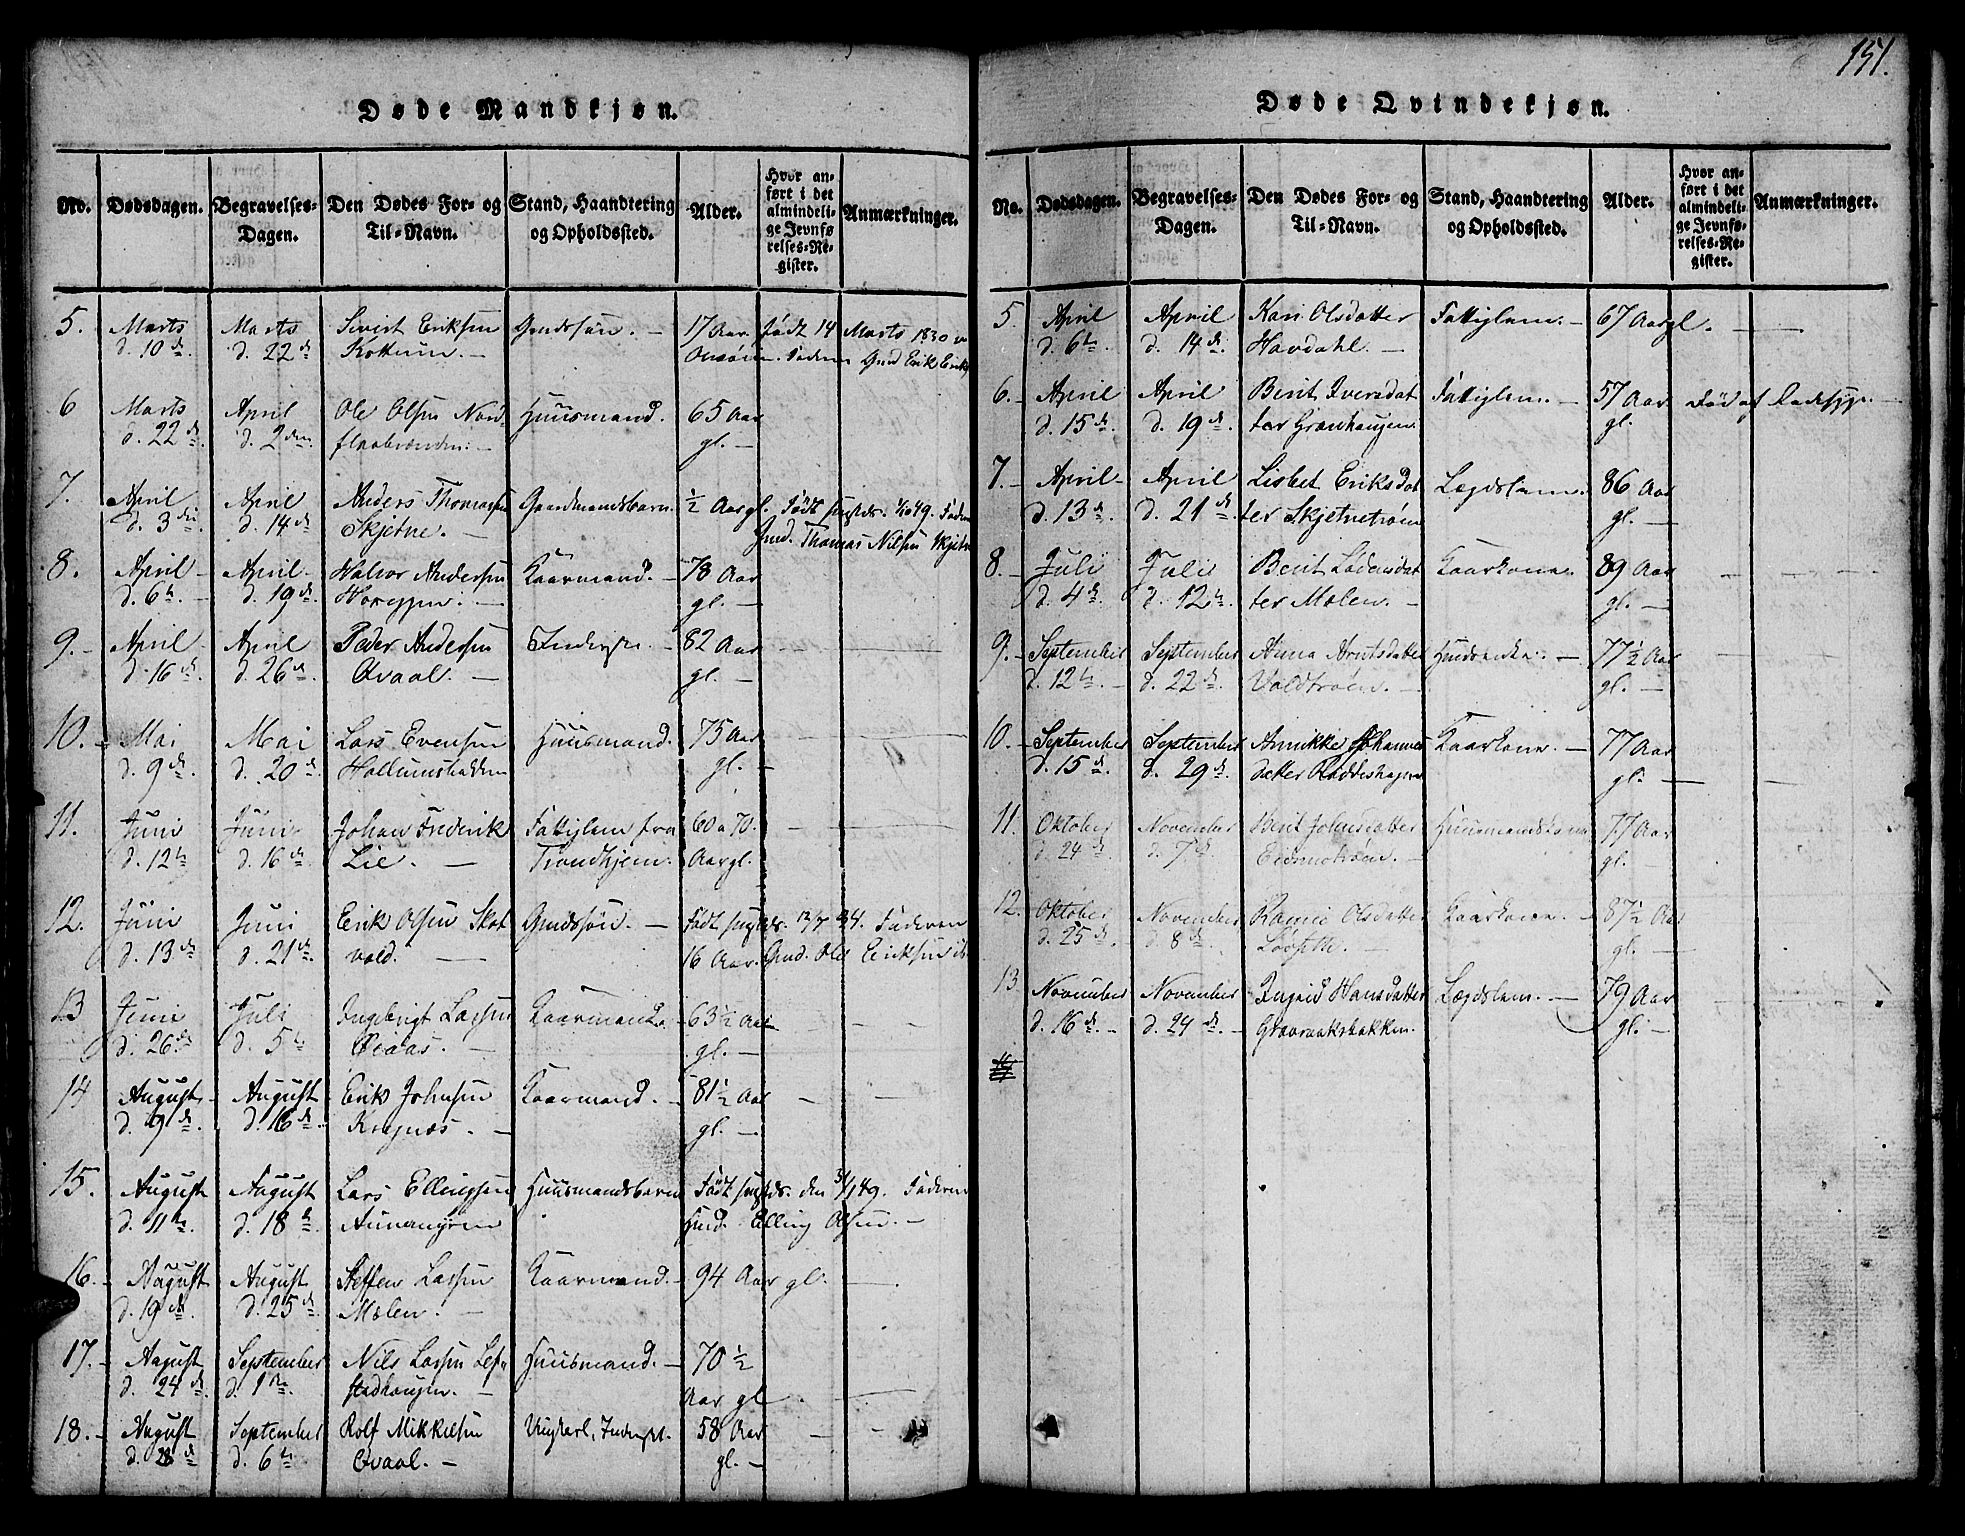 151.
Døde Mandkjøn.
No. Dødsdagen. Begravelses-Dagen. Den Dødes For- og Til-Navn. Stand, Haandtering og Opholdssted. Alder. Hvor anført i det almindelige Jevnførelses-Register. Anmærkninger.
5. Marts Marts Sivert Eriksen Gmdssøn. — 17 Aar. født 14 Marts 1830
d. 10de d. 22de Kottum. — Faderen Gmd Erik
6 Marts April Ole Olsen Nord- Huusmand. 65 Aar
d. 22de. d. 2den flaabrænden. — gl. —
7. April April Anders Thomassen Gaardmandsbarn. ½ Aar gl. Født Faderen
d. 3die d. 14de Skjetne. — Gmd. Thomas Nilsen Skjetne
8. April April Halvor Andersen Kaarmand. — 78 Aar
d. 6te. — d. 19de. — gl. —
9. — April April Peder Andersen Inderst. — 82 Aar
d. 16de. d. 26de Qvaal. — gl. —
10. — Mai Mai Lars Evensen Huusmand. 75 Aar —
d. 9de. d. 20de gl. —
11. Juni Juni. Johan Frederik Fattiglem fra 60 a 70. — —
d. 12te d. 16de Lie. — Trondhjem. Aar gl.
12. Juni Juni Erik Olsen Skot- Gmdssøn. — Født 34. Faderen
d. 13de d. 21de. vold. — 16 Aar. Gmd. Ole Eriksen
13 Juni Juli Ingebrigt Larsen Kaarmand. — 63½ Aar — —
d. 26de. d. 5te Øvaas. — gl. —
14 August. August Erik Johnsen Kaarmand. — 81½ Aar — —
d. 9de. d. 16de. Kregnæs. — gl. —
15. August August Lars Ellingsen Huusmandsbarn Født den 49. Faderen
d. 11te. d. 18de Hmd. Elling Olsen. —
16. — August August Steffen Larsen Kaarmand. — 94 Aar gl. —
d. 19de d. 25de Melen. —
17. — August September Nils Larsen Lef- Huusmand. — 70 ½
d. 24de. d. 1ste. stadhaugen. — Aar gl. —
18. — August September Rolf Mikkelsen Ungkarl, Inderst. — 58 Aar — —
d. 28de d. 6te Qvaal. — gl. —
Døde Qvindekjøn.
No. Dødsdagen. Begravelses-Dagen. Den Dødes For- og Til-Navn. Stand, Haandtering og Opholdssted. Alder. Hvor anført i det almindelige Jevnførelses-Register. Anmærkninger.
5. April April Kari Olsdatter Fattiglem. — 67 Aar gl. —
d. 6te d. 14de. Havdahl. —
6. — April April Berit Iversdat- Fattiglem. — 57 Aar Død af Radesyge. —
d. 15de. d. 19de. ter Granhaugen gl. —
7. — April — April Lisbet Eriksdat- Lægdslem. 86 Aar
d. 13de. d. 21de. ter Skjetnetrøen gl. —
8. — Juli Juli Berit Kaarkone. 89 Aar — —
d. 4de. d. 12te. ter Melen. — gl. —
9. — September September Anna Arntsdatter Huusenke. — 77½ Aar
d. 12te. — d. 22de. Valdtrøen. — gl. —
10. — September September Annikke Johannes- Kaarkone. — 77 Aar
d. 15de. d. 29de. datter gl. —
11. Oktober November Berit Johnsdatter Huusmandskone 77 Aar
d. 24de d. 7de. gl. —
12. Oktober November Olsdatter Kaarkone. — 87½ Aar
d. 25de. d. 8de. Løvsette. — gl. —
13 November November Ingrid Hansdatter Lægdslem. — 79 Aar
d. 16de. — d. 24de. — Gravraaksbakken. gl. —